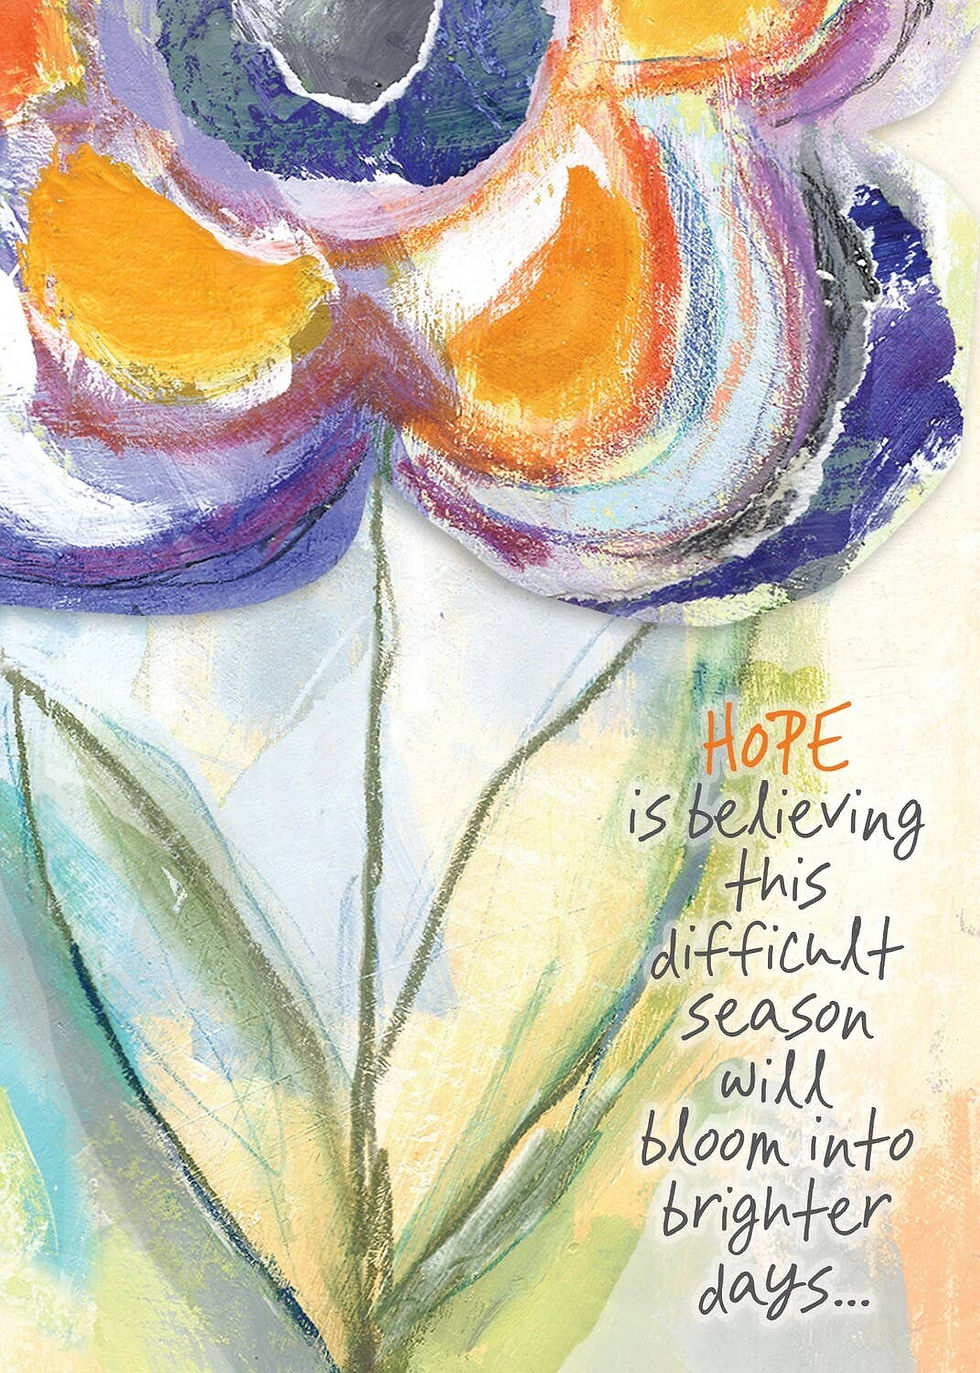 HOPE
is believing
this
difficult
season
will
bloom into
brighter
days...